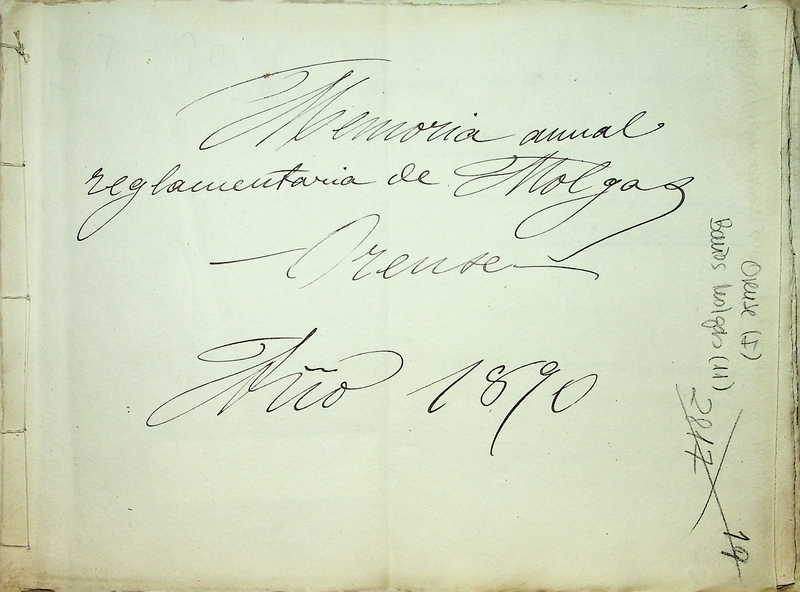 Memoria anual
reglamentaria de Molgas
— Orense —
Año 1890
Orense (I)
Baños Molgas (11)
2817
19